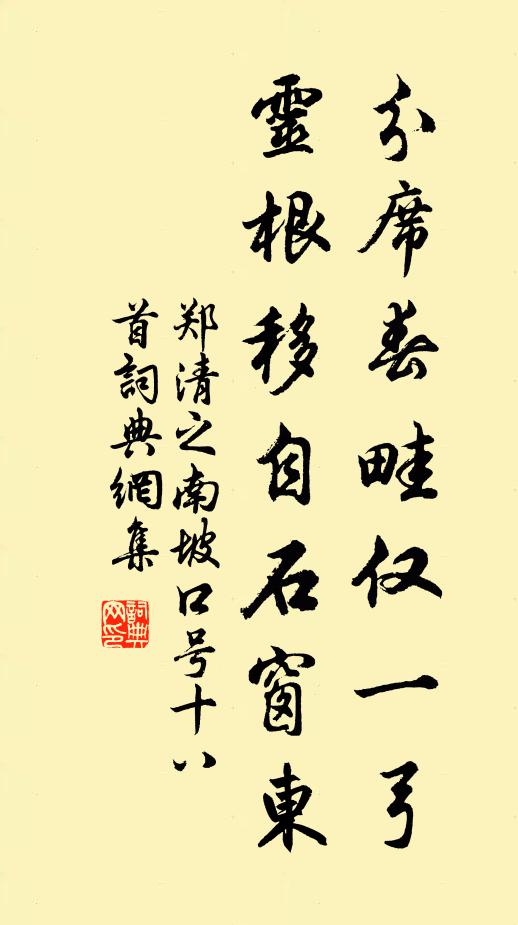 分席春畦仅一弓
靈根移自石窗東
郑清之南坡口号十八
首詞典網集
詞典網印